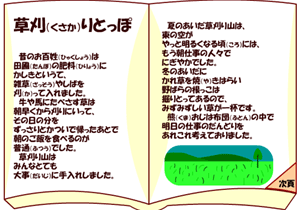 草刈(くさか)りとっぽ
昔のお百姓(ひゃくしょう)は
田圃(たんぼ)の肥料(ひりょう)に
かしきといって、
雑草(ざっそう)やしばを
刈(か)って入れました。
牛や馬にたべさす草は
朝早くから刈りにいって、
その日の分を
ずっさりとかついで帰ったあとで
朝のご飯を食べるのが
普通(ふつう)でした。
草刈り山は
みんなとても
大事(だいじ)に手入れしました。
夏のあいだ草刈り山は、
東の空が
やっと明るくなる頃(ころ)には、
もう朝仕事の人々で
にぎやかでした。
冬のあいだに
かれ草を焼(や)きはらい
野ばらの根っこは
掘りとってあるので、
みずみずしい草が一杯です。
熊(くま)おじは布団(ふとん)の中で
明日の仕事のだんどりを
あれこれ考えておりました。
次頁